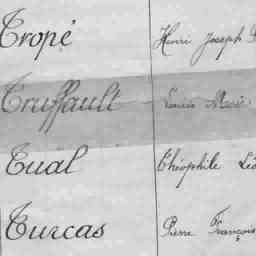 Tropé Henri Joseph
Truffault Louis Marie
Tual Théophile Léo
Turcas Pierre François